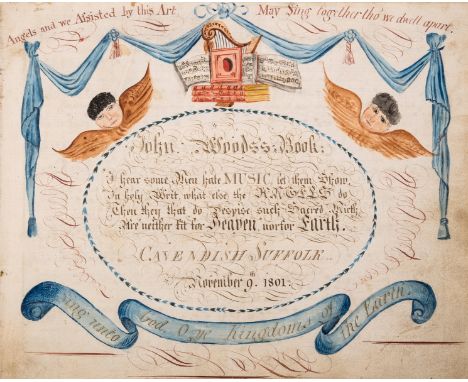 Angels and we Assisted by this Art, May Sing together tho we dwell apart.
John Woods's Book:
I hear some Men hate MUSIC, let them Show,
In holy Writ what else the ANGELS do
Then they that do Despise such Sacred Mirth
Are neither fit for Heaven, nor for Earth.
CAVENDISH SUFFOLK.
November 9.th 1801.
Sing unto God, O ye kingdoms of the Earth.